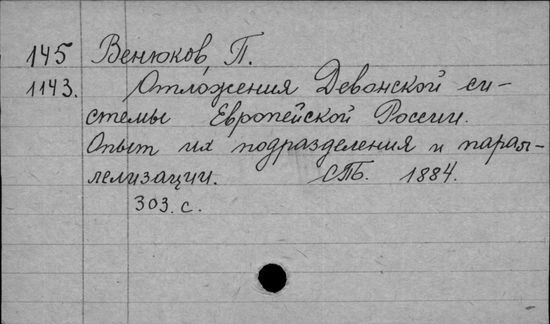 145 Венюков, П.
1143. Отложения Девонской си-
стемы Европейской России.
Опыт их подразделения и парал-
лелизации. СПБ. 1884.
303. с.